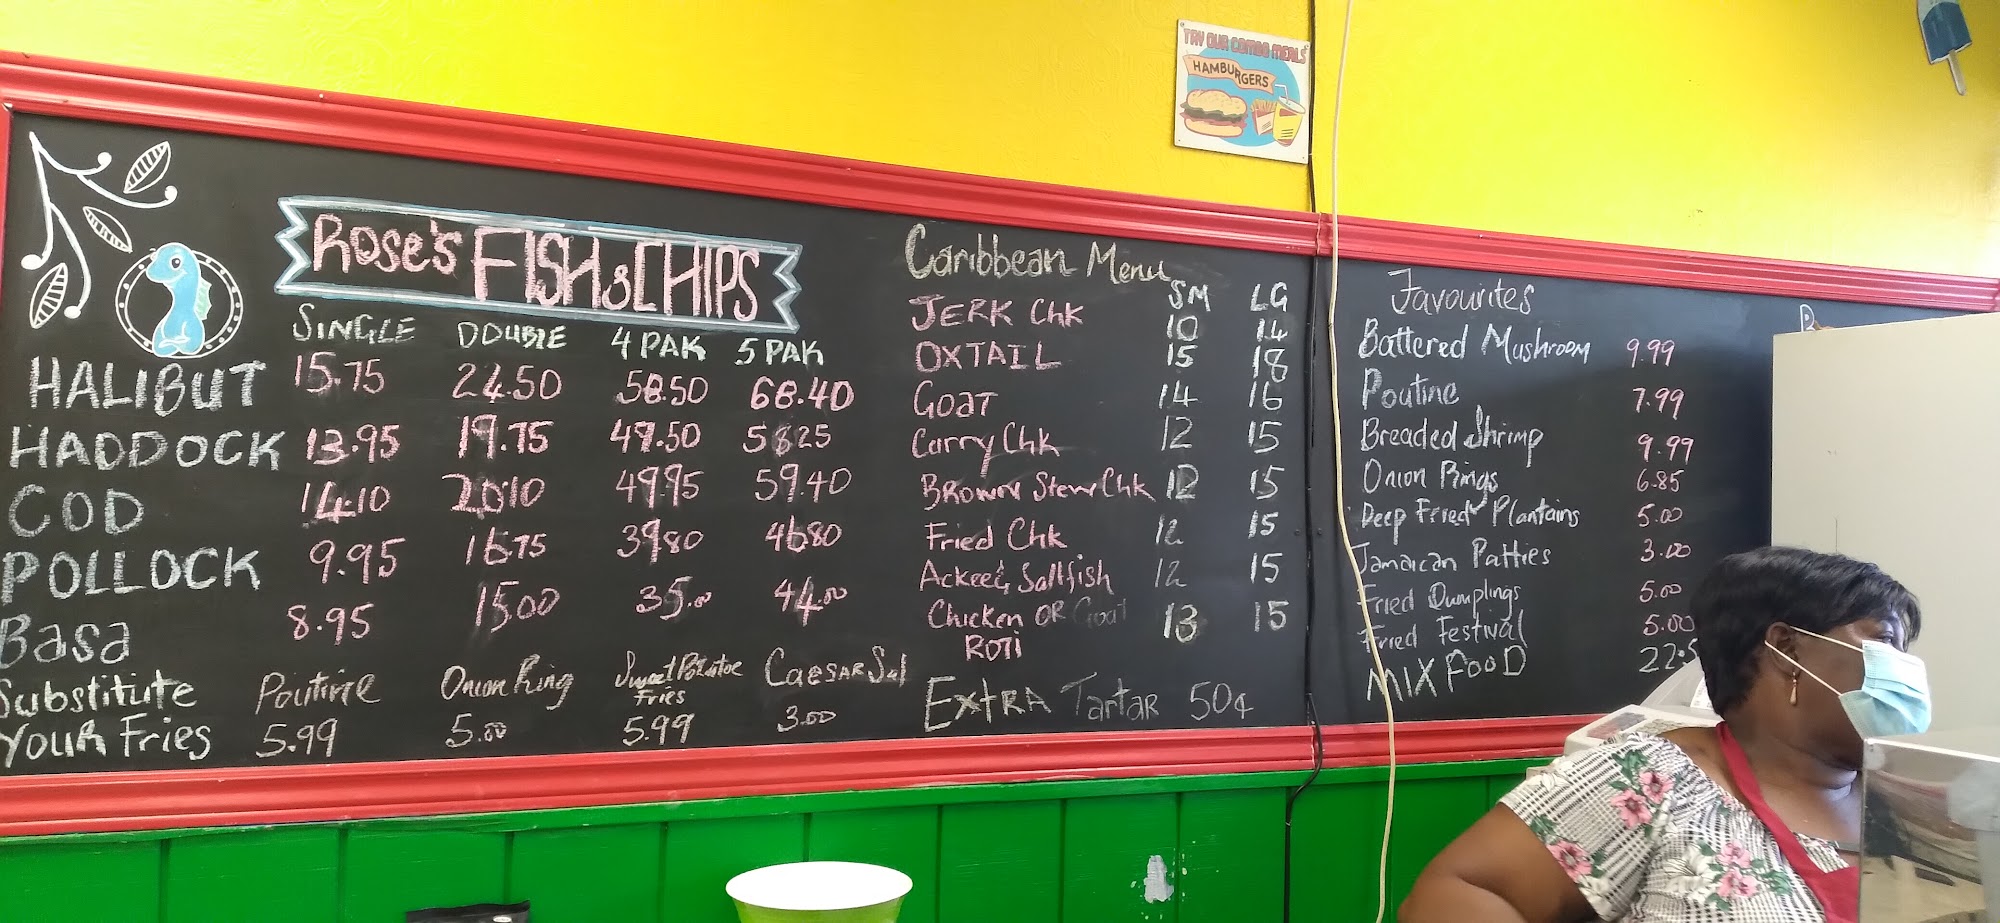 TRY OUR COMBO MEALS
HAMBURGERS
Rose's FISH & CHIPS
SINGLE DOUBLE 4 PAK 5 PAK
HALIBUT 15.75 24.50 58.50 68.40
HADDOCK 13.95 19.75 47.50 58 25
COD 14.10 20.10 49.95 59.40
POLLOCK 9.95 16.75 39.80 46.80
Basa 8.95 15.00 35.00 44.00
Substitute Your Fries
Poutine 5.99
Onion Ring 5.00
Sweet Potatoe Fries 5.99
CAESAR Sal 3.00
Caribbean Menu
SM LG
JERK Chk 10 14
OXTAIL 15 18
GOAT 14 16
Curry Chk 12 15
BROWN Stew Chk 12 15
Fried Chk 12 15
Ackee & Saltfish 12 15
Chicken OR Goat 13 15
ROTI
EXTRA Tartar 50¢
Favourites
Battered Mushroom 9.99
Poutine 7.99
Breaded Shrimp 9.99
Onion Rings 6.85
Deep Fried Plantains 5.00
Jamaican Patties 3.00
Fried Dumplings 5.00
Fried Festival 5.00
MIX FOOD